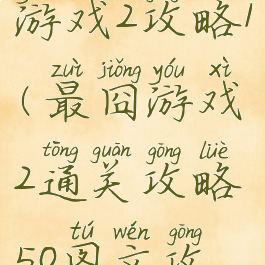 游戏2攻略1
zuì jiǒng yóu xì
(最囧游戏
tōng guān gōng lüè
2通关攻略
tú wén gōng
50图文攻